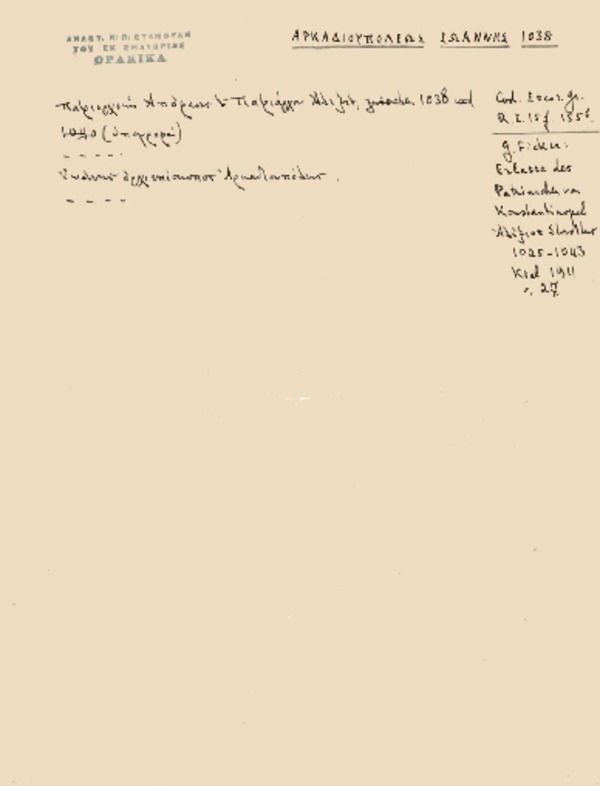 ΑΝΑΣΤ. Κ. Π. ΣΤΑΜΟΥΛΗ
ΤΟΥ ΕΚ ΣΗΛΥΒΡΙΑΣ
ΘΡΑΚΙΚΑ
ΑΡΚΑΔΙΟΥΠΟΛΕΩΣ ΙΩΑΝΝΗΣ 1038
Πατριαρχική Απόφασις Πατριάρχου Αλεξίου, zwischen 1038 und
1040 (υπογραφαί)
Ιωάννης αρχιεπίσκοπος Αρκαδιουπόλεως.
Cod. Escor. gr.
R. I. 15 f. 155b.
G. Ficker:
Erlasse des
Patriarchen von
Konstantinopel
Alexios Studites
1025-1043
Kiel 1911
σ. 27